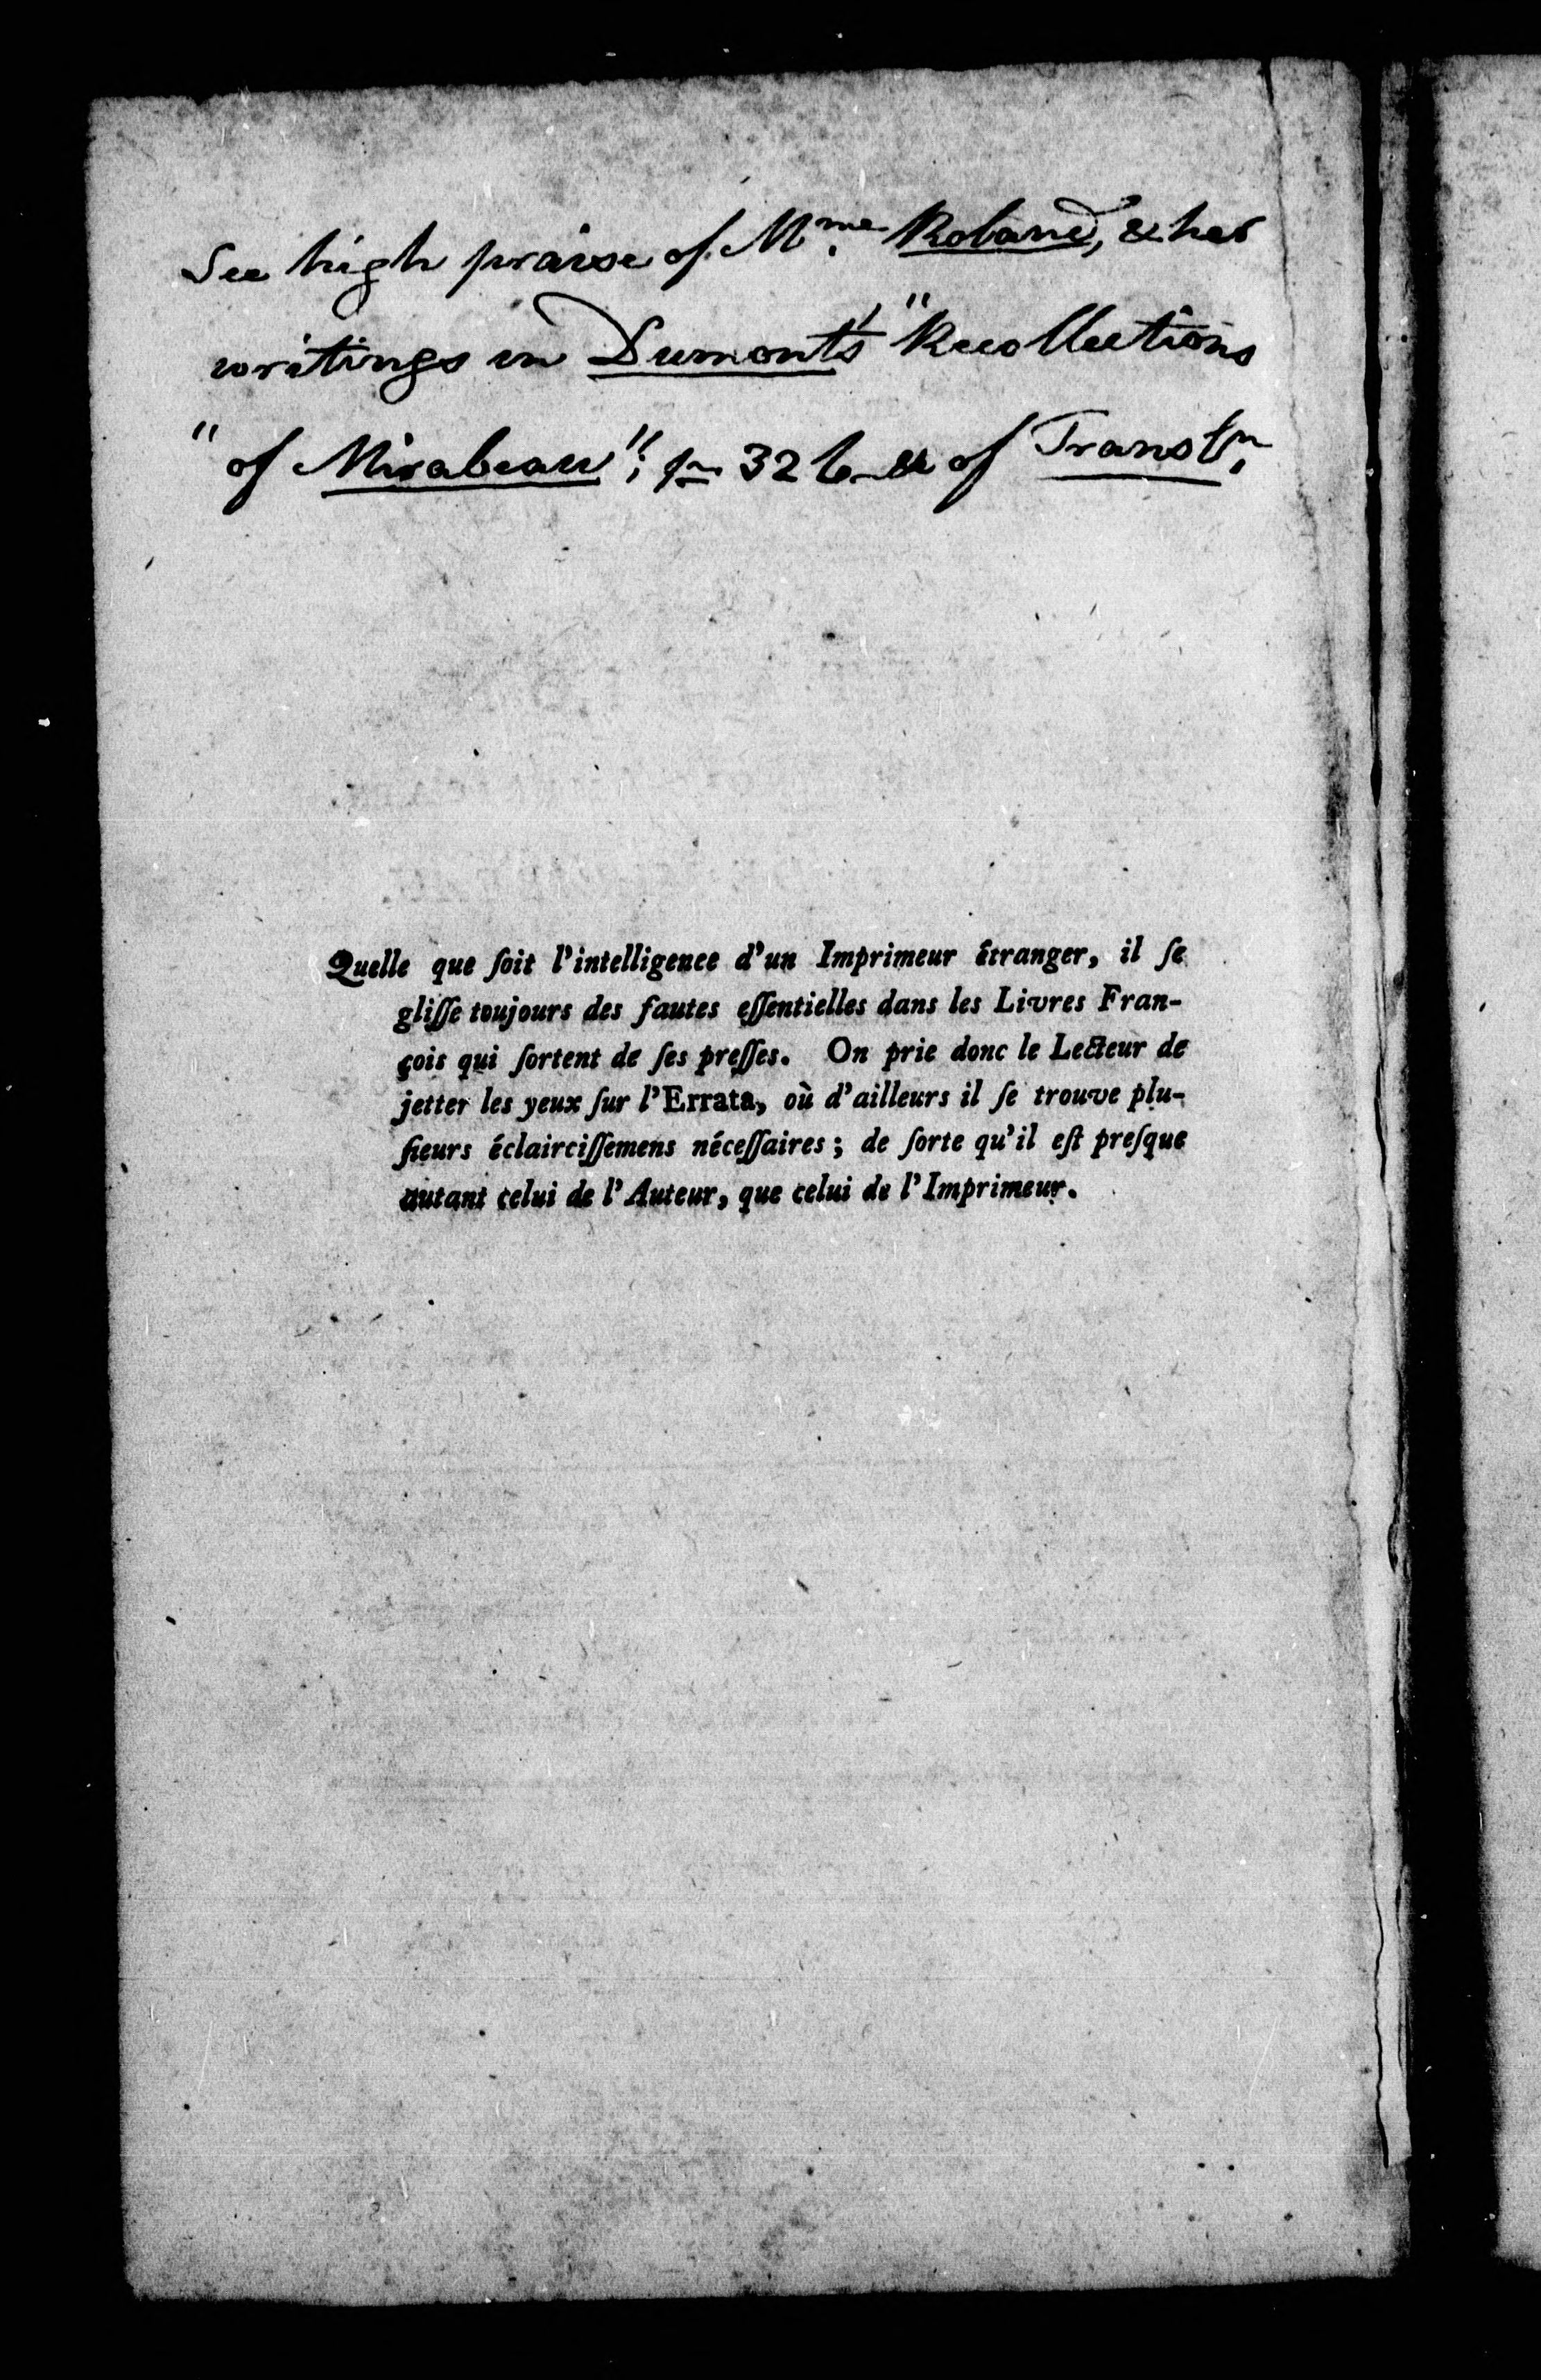 See high praise of Mme. Roland, & her
writings in Dumont's "Recollections
"of Mirabeau"; p. 326 & of Transln.
Quelle que ſoit l'intelligence d'un Imprimeur étranger, il ſe
gliſſe toujours des fautes eſſentielles dans les Livres Fran-
çois qui ſortent de ſes preſſes. On prie donc le Lecteur de
jetter les yeux ſur l'Errata, où d'ailleurs il ſe trouve plu-
ſieurs éclairciſſemens néceſſaires; de ſorte qu'il eſt preſque
autant celui de l'Auteur, que celui de l'Imprimeur.